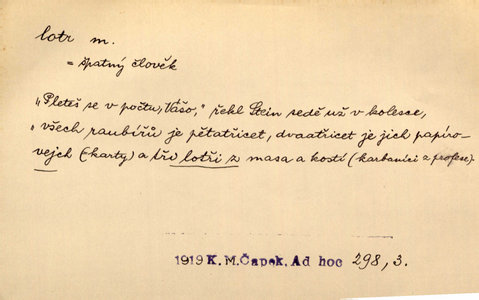 lotr m.
= špatný člověk
„Pleteš se v počtu, Vášo," řekl Stein sedě už v kolesce,
„všech raubířů je pětatřicet, dvaatřicet je jich papíro-
vejch (=karty) a tři lotři z masa a kostí (karbaníci z profese).
1919 K. M. Čapek, Ad hoc 298, 3.